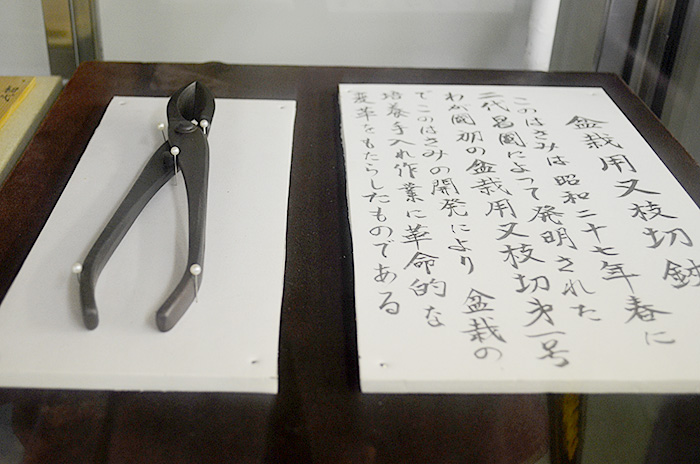 盆栽用又枝切鋏
このはさみは昭和二十七年春に
二代昌國によって発明された
わが國初の盆栽用又枝切第一号
でこのはさみの開発により 盆栽の
培養手入れ作業に革命的な
変革をもたらしたものである
初代